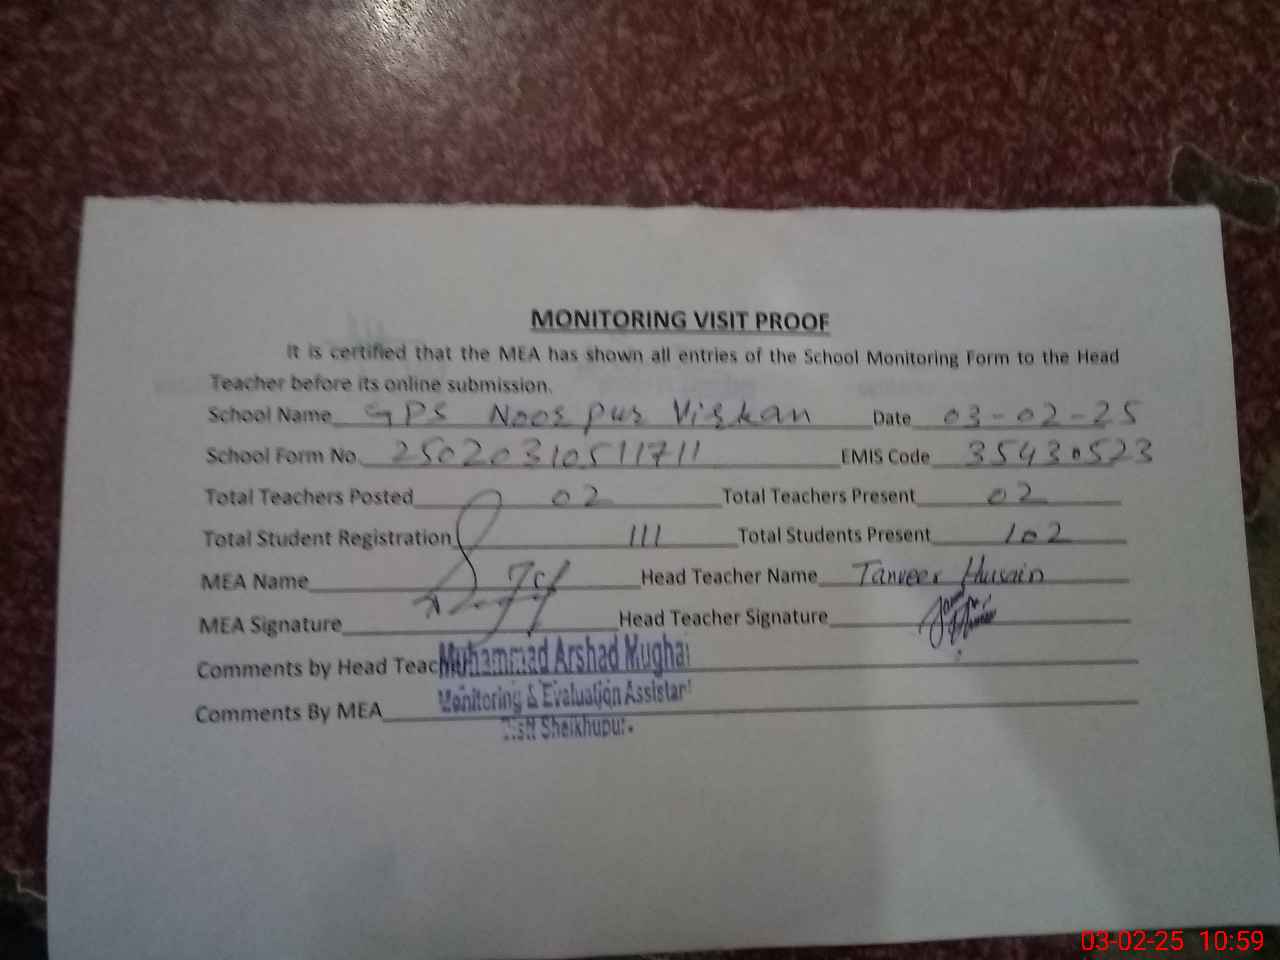 MONITORING VISIT PROOF
It is certified that the MEA has shown all entries of the School Monitoring Form to the Head
Teacher before its online submission.
School Name GPS Noor pur Virkan Date 03-02-25
School Form No. 25020310511711 EMIS Code 35430523
Total Teachers Posted 02 Total Teachers Present 02
Total Student Registration 111 Total Students Present 102
MEA Name Head Teacher Name Tanveer Husain
MEA Signature Head Teacher Signature
Comments by Head Teac
Muhammad Arshad Mughal
Monitoring & Evaluation Assistant
Comments By MEA
Distt Sheikhupura
03-02-25 10:59